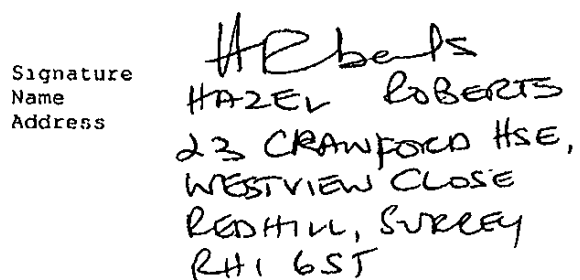 Signature HRoberts
Name HAZEL ROBERTS
Address
23 CRAWFORD HSE,
WESTVIEW CLOSE
REDHILL, SURREY
RH1 6ST